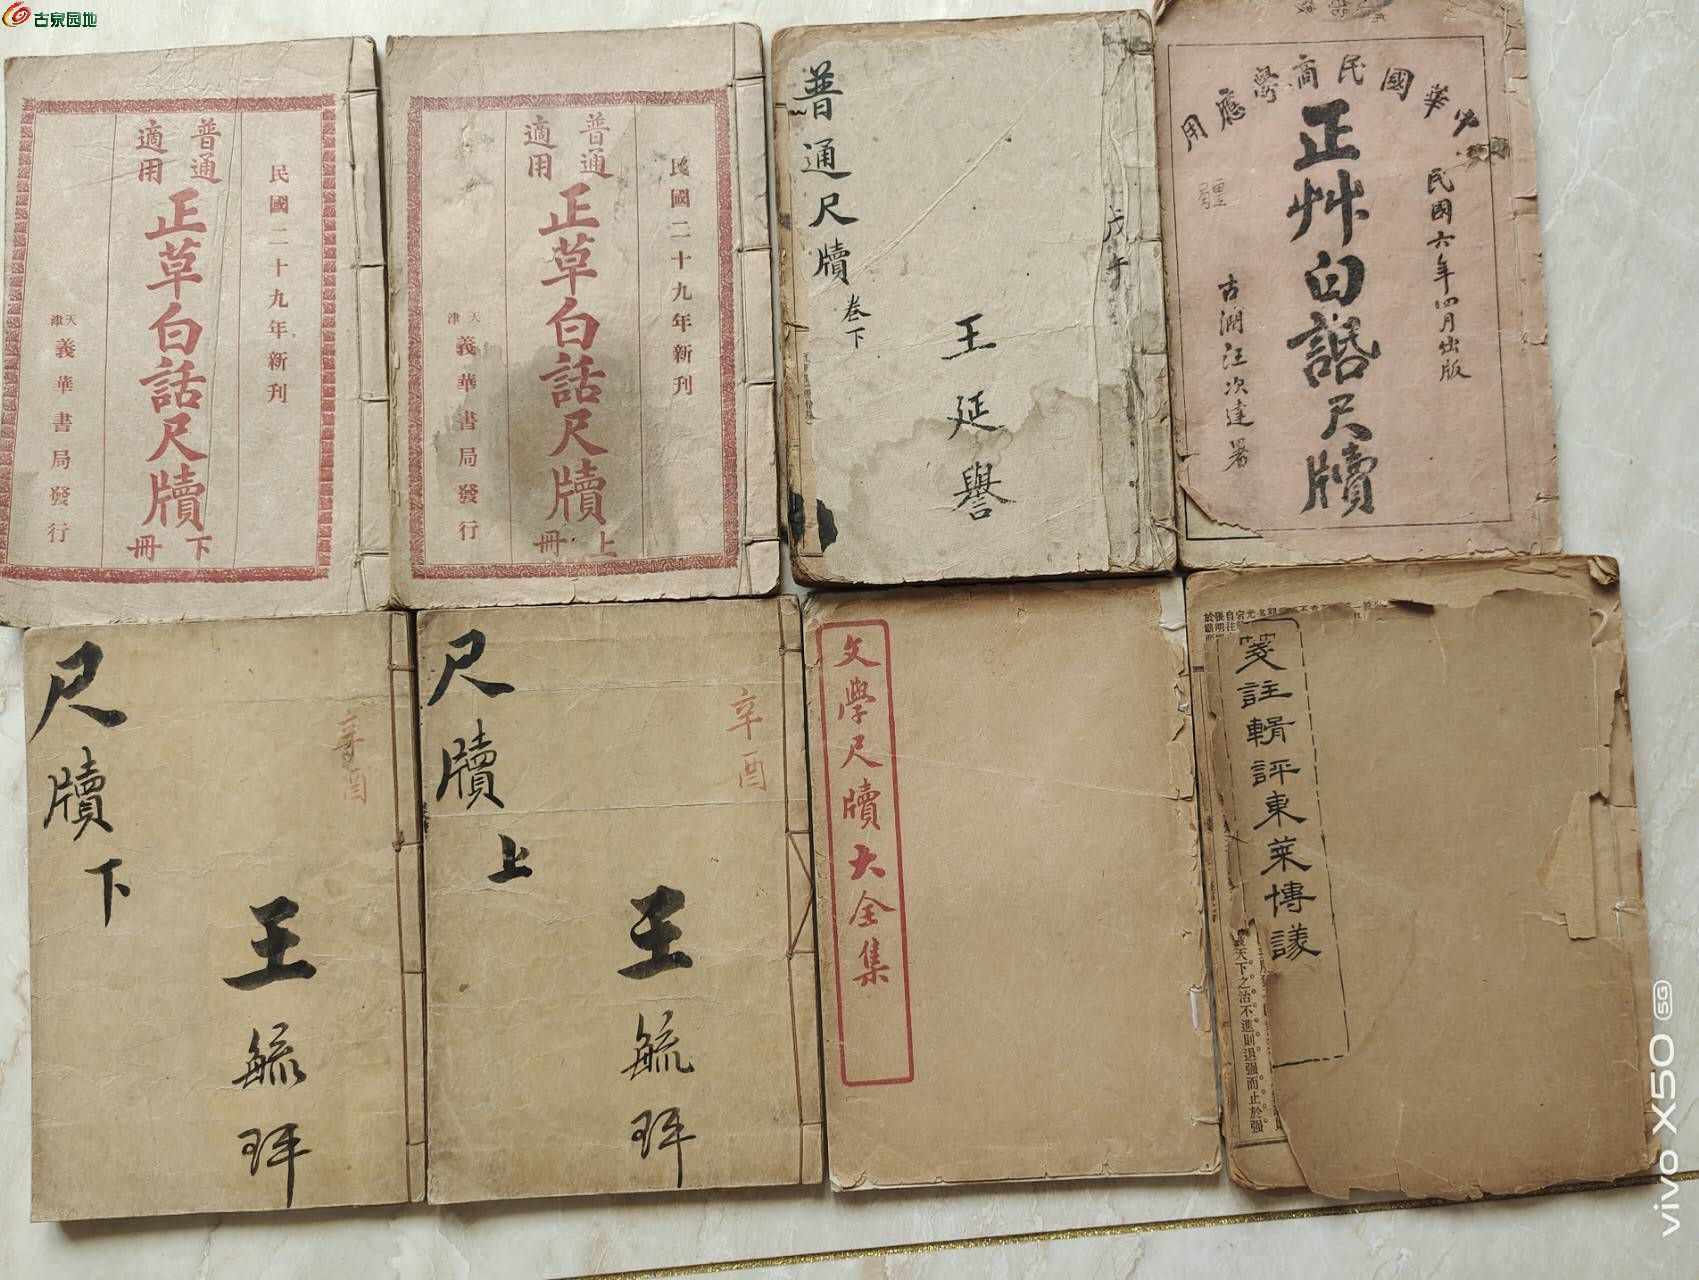 古泉园地
民國二十九年新刊
普通
適用
正草白話尺牘
下冊
天津
義華書局發行
民國二十九年新刊
普通
適用
正草白話尺牘
上冊
天津
義華書局發行
普通尺牘
卷下
戊午
王延譽
華國民商學應用
民國六年四月出版
正艸白話尺牘
古潤汪次達署
尺牘
下
辛酉
王毓珜
尺牘
上
辛酉
王毓珜
文學尺牘大全集
箋註輯評東萊博議
天下之治不進則退强而止於强
vivo X50 5G